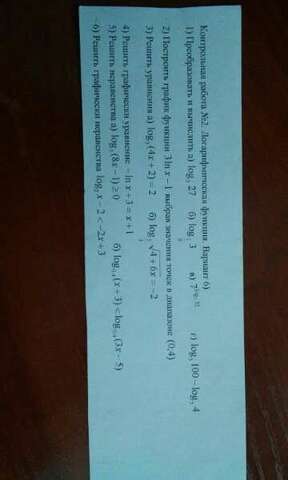 Контрольная работа №2. Логарифмическая функция. Вариант 6)
1) Преобразовать и вычислить а) log₃ 27 б) log 3 в) 7 г) log₅ 100 – log₅ 4
2) Построить график функции 3 ln x – 1 выбрав значения точек в диапазоне (0;4)
3) Решить уравнения а) log (4x + 2) = 2 б) log √4 + 6x = –2
4) Решить графически уравнение – ln x + 3 = x + 1
5) Решить неравенства а) log (8x – 1) ≥ 0 б) log (x + 3) < log (3x – 5)
6) Решить графически неравенства log₂ x – 2 < –2x + 3